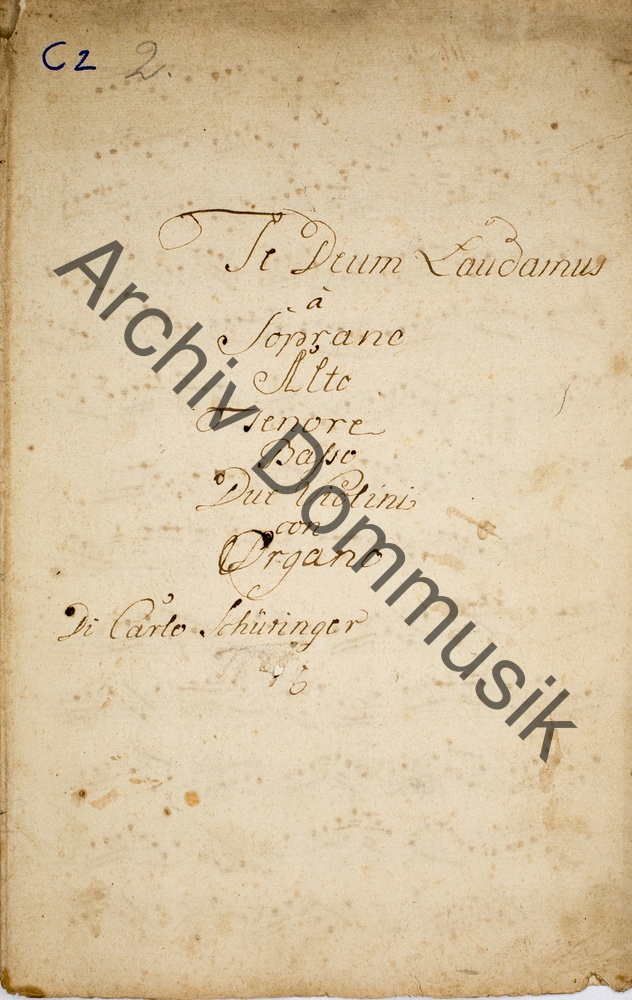 C2 2.
Te Deum Laudamus
à
Soprano
Alto
Tenore
Basso
Due Violini
con
Organo
Di Carlo Schüringer
Archiv Dommusik